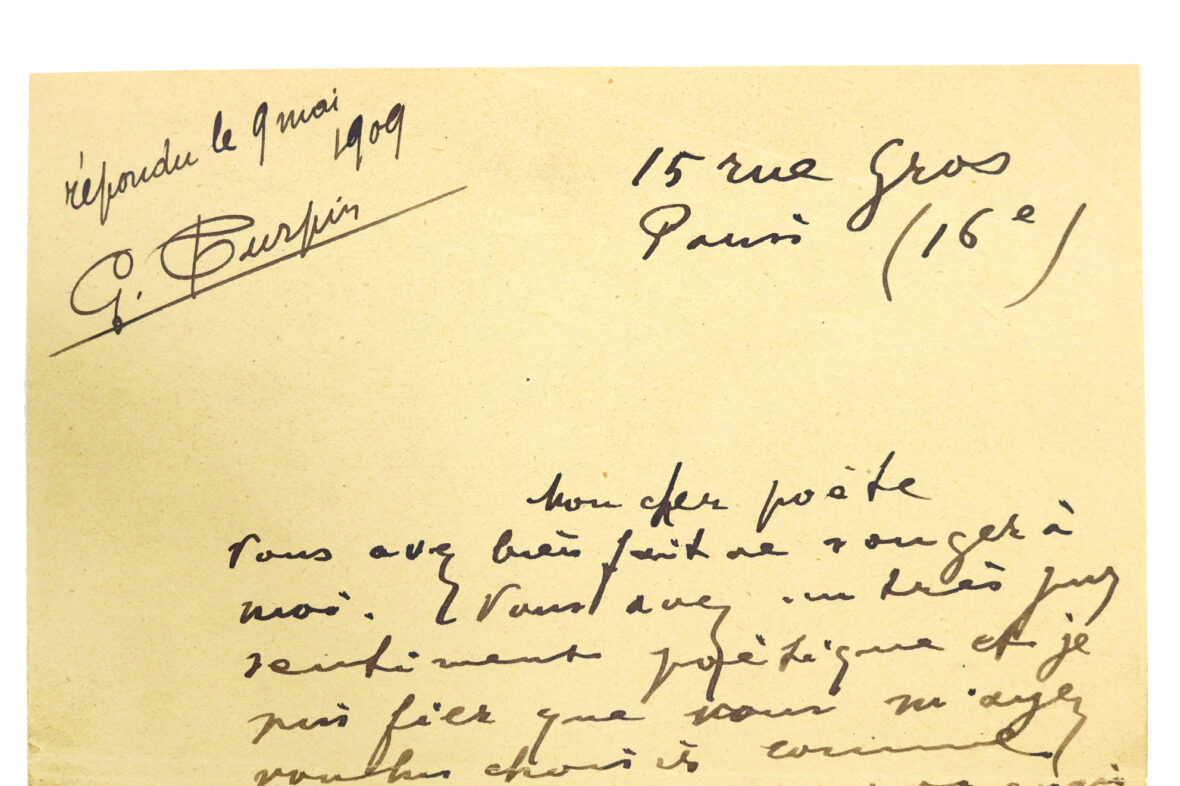 répondu le 9 mai
1909
G. Turpin
15 rue Gros
Paris (16e)
Mon cher poète
Vous avez bien fait de songer à
moi. Vous avez un très pur
sentiment poétique et je
suis fier que vous m'ayez
voulu choisir comme